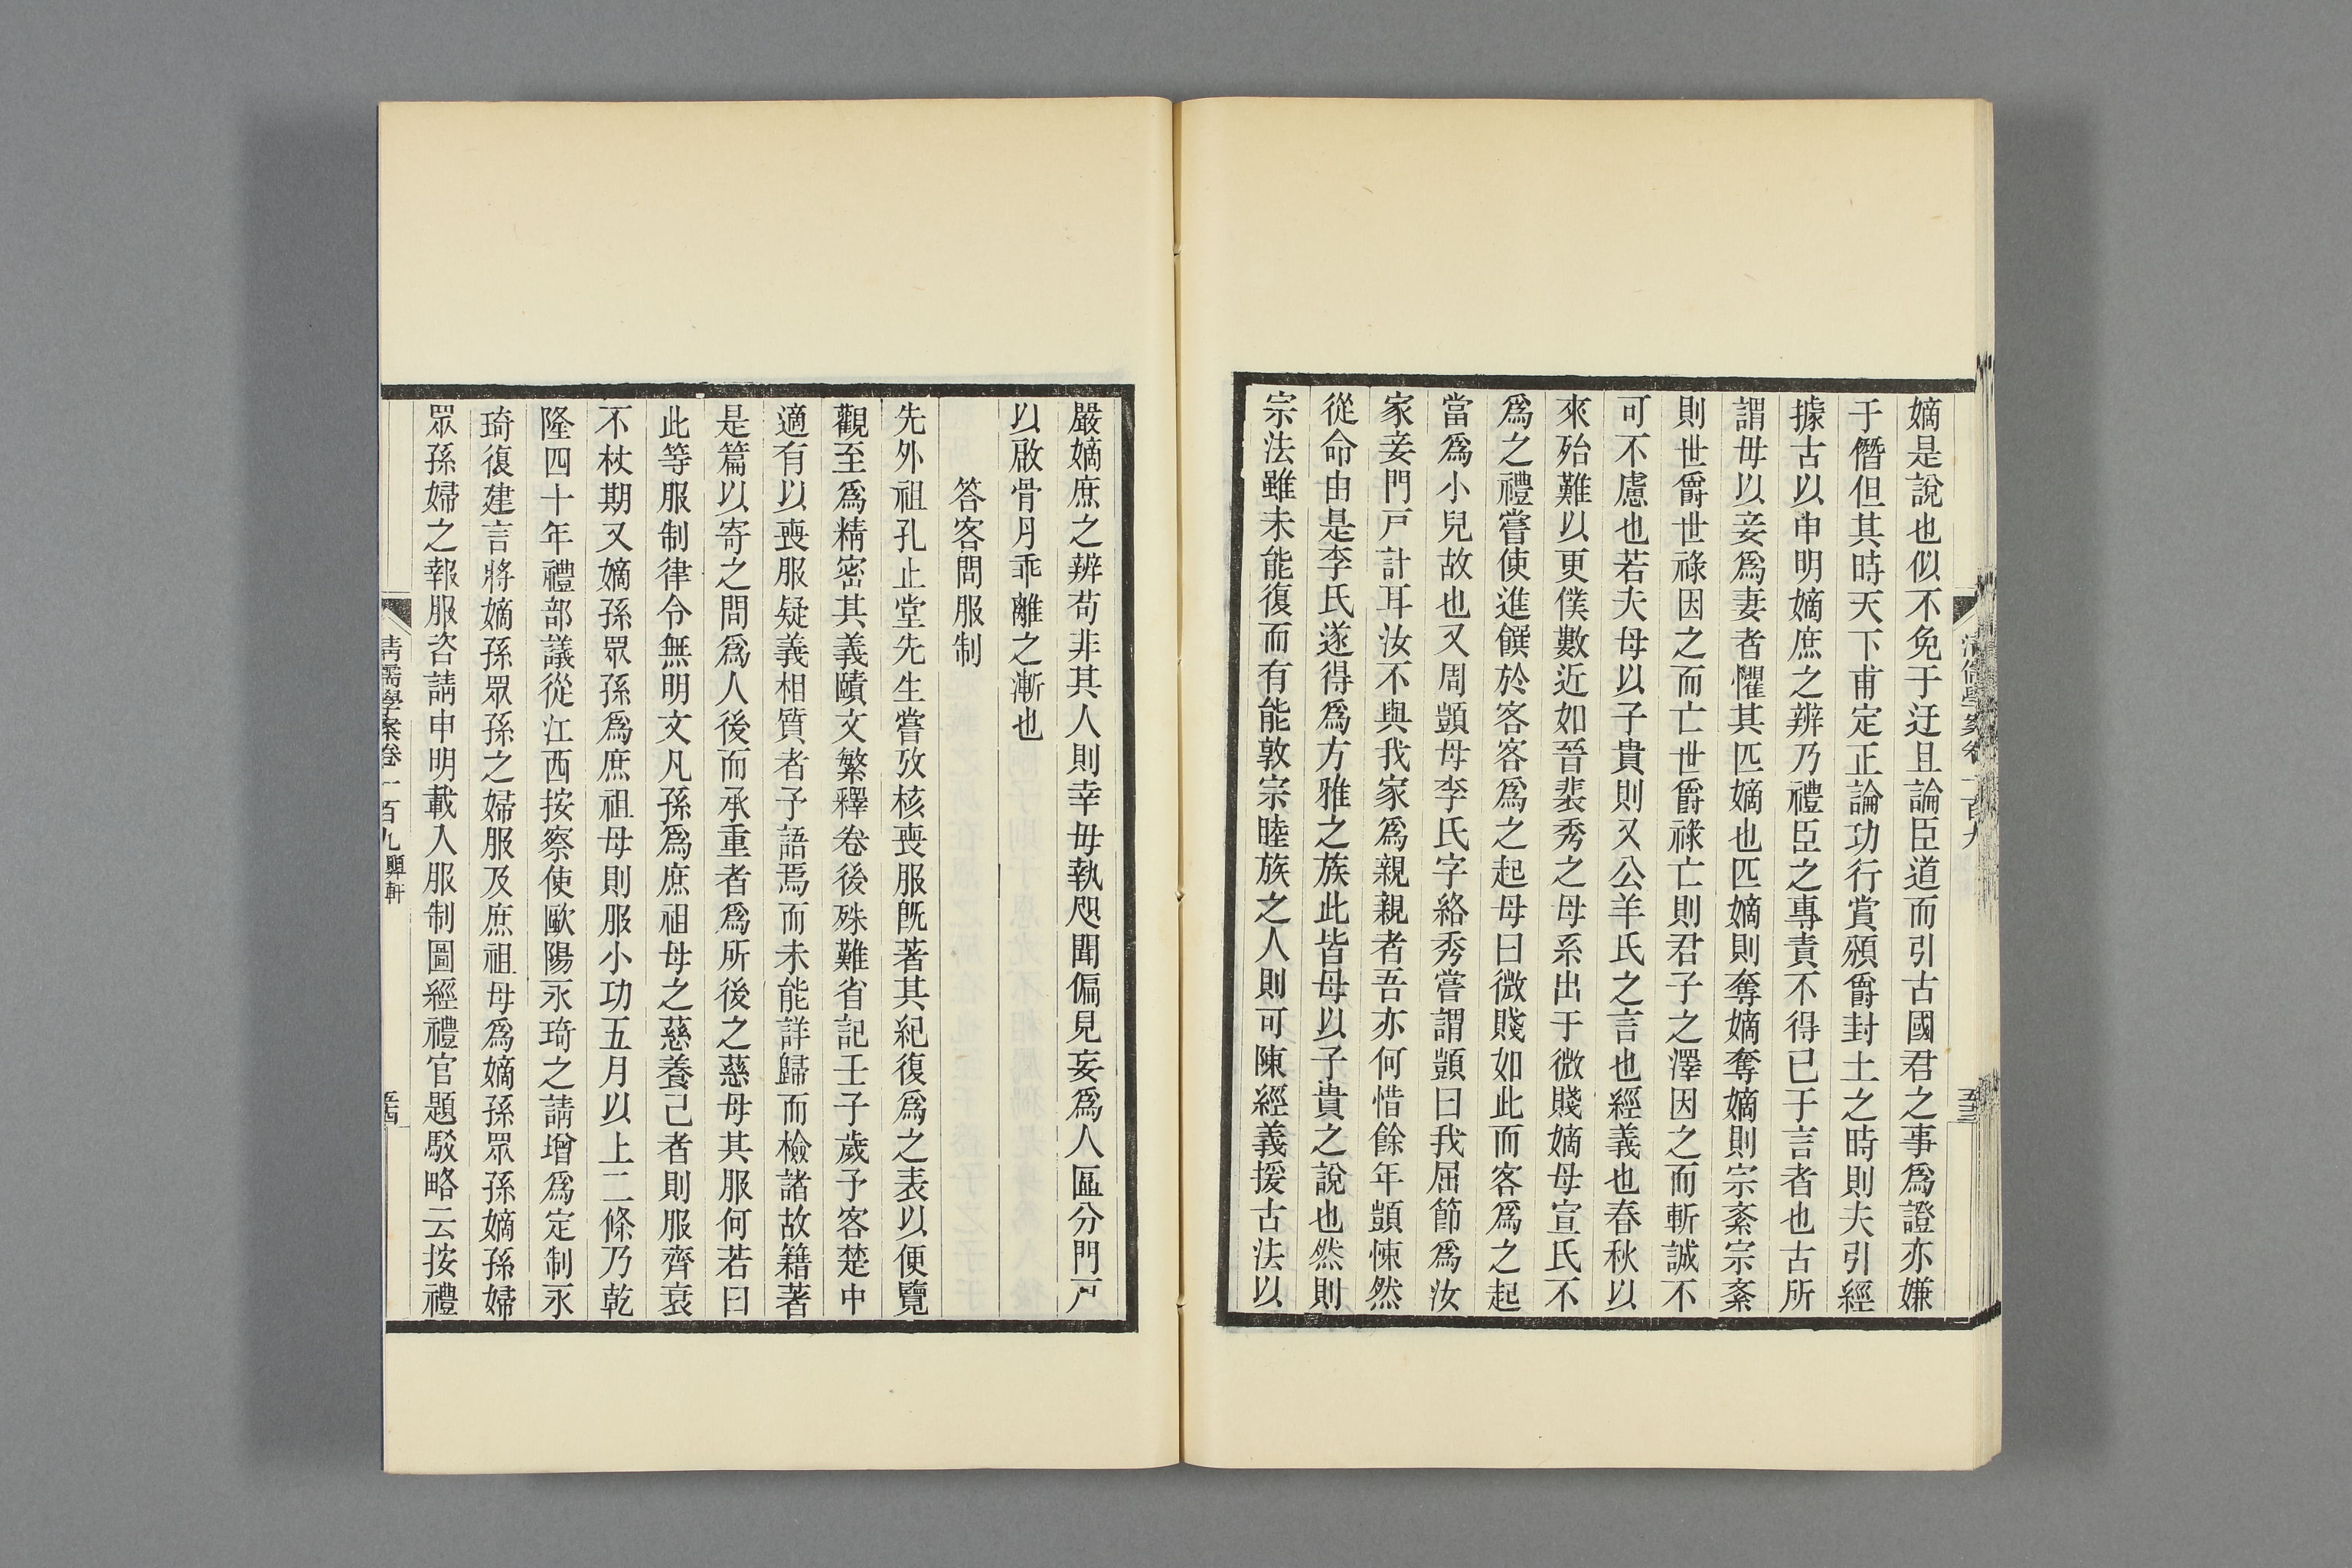 嫡是說也似不免于迂且論臣道而引古國君之事爲證亦嫌
于僭但其時天下甫定正論功行賞頒爵封土之時則夫引經
據古以申明嫡庶之辨乃禮臣之專責不得已于言者也古所
謂毋以妾爲妻者懼其匹嫡也匹嫡則奪嫡奪嫡則宗紊宗紊
則世爵世祿因之而亡世爵祿亡則君子之澤因之而斬誠不
可不慮也若夫母以子貴則又公羊氏之言也經義也春秋以
來殆難以更僕數近如晉裴秀之母系出于微賤嫡母宣氏不
爲之禮嘗使進饌於客客爲之起母曰微賤如此而客爲之起
當爲小兒故也又周顗母李氏字絡秀嘗謂顗曰我屈節爲汝
家妾門戸計耳汝不與我家爲親親者吾亦何惜餘年顗悚然
從命由是李氏遂得爲方雅之族此皆母以子貴之說也然則
宗法雖未能復而有能敦宗睦族之人則可陳經義援古法以
清儒學案卷一百九
五十三
嚴嫡庶之辨苟非其人則幸毋執咫聞偏見妄爲人區分門戸
以啟骨月乖離之漸也
答客問服制
先外祖孔止堂先生嘗攷核喪服旣著其紀復爲之表以便覽
觀至爲精密其義賾文繁釋卷後殊難省記壬子歲予客楚中
適有以喪服疑義相質者予語焉而未能詳歸而檢諸故籍著
是篇以寄之問爲人後而承重者爲所後之慈母其服何若曰
此等服制律令無明文凡孫爲庶祖母之慈養己者則服齊衰
不杖期又嫡孫眾孫爲庶祖母則服小功五月以上二條乃乾
隆四十年禮部議從江西按察使歐陽永琦之請增爲定制永
琦復建言將嫡孫眾孫之婦服及庶祖母爲嫡孫眾孫嫡孫婦
眾孫婦之報服咨請申明載入服制圖經禮官題駁略云按禮
清儒學案卷一百九 顨軒
五十四